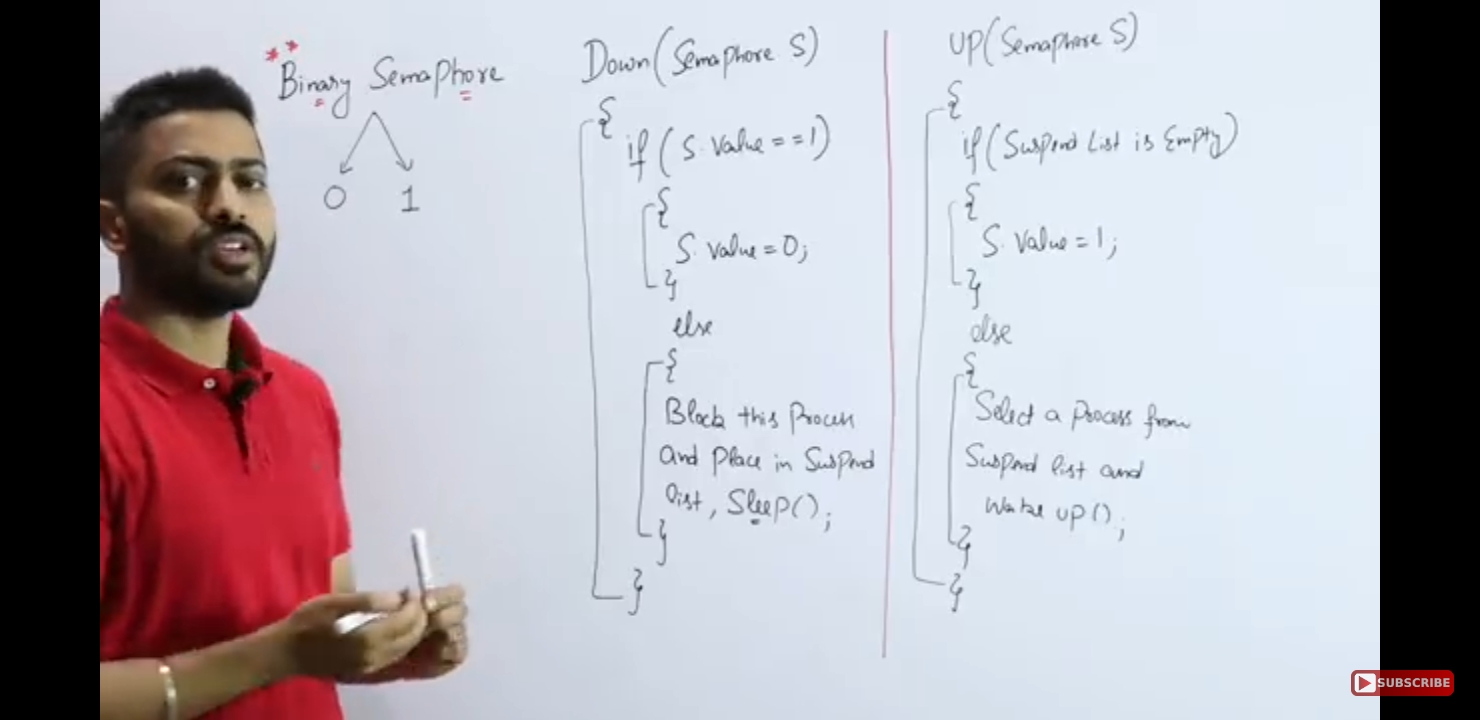 **
Binary Semaphore
0 1
Down(Semaphore S)
{
if (S.Value==1)
{
S.Value=0;
}
else
{
Block this Process
and Place in Suspend
list, Sleep();
}
}
UP(Semaphore S)
{
if(Suspend List is Empty)
{
S.Value=1;
}
else
{
Select a Process from
Suspend list and
Wake up();
}
}
SUBSCRIBE